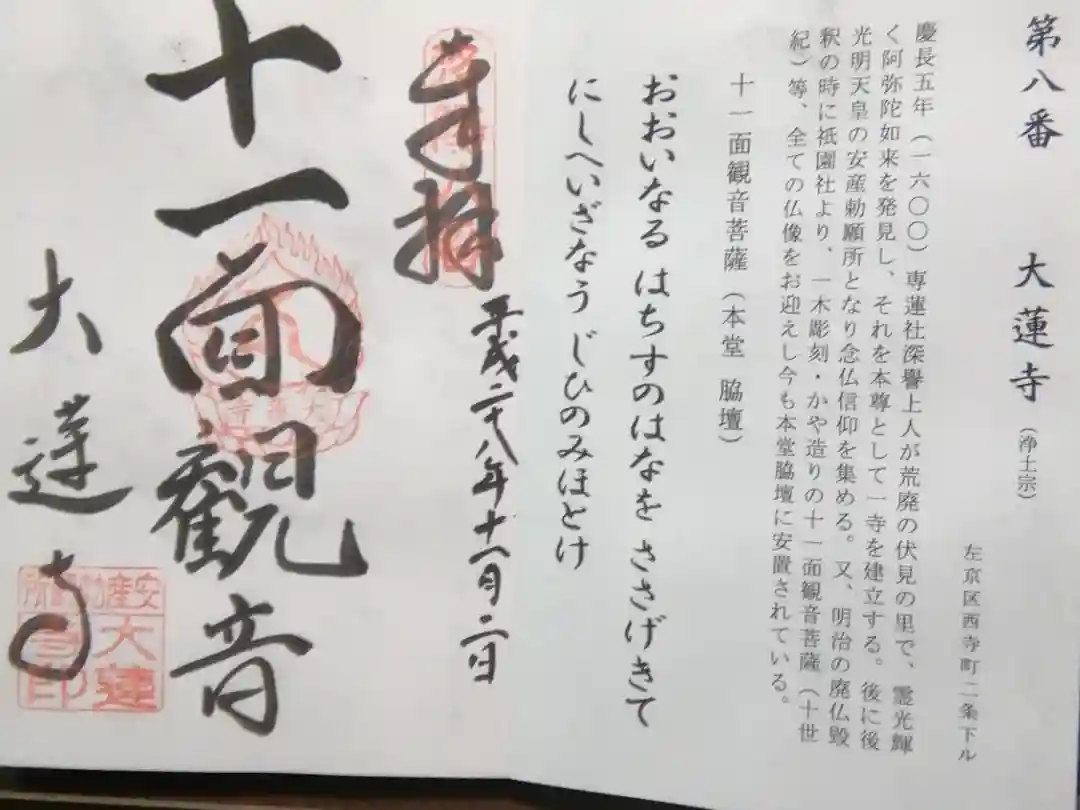 第八番 大蓮寺（浄土宗）
左京区西寺町二条下ル
慶長五年（一六〇〇）専蓮社深譽上人が荒廃の伏見の里で、霊光輝
く阿弥陀如来を発見し、それを本尊として一寺を建立する。後に後
光明天皇の安産勅願所となり念仏信仰を集める。又、明治の廃仏毀
釈の時に祇園社より、一木彫刻・かや造りの十一面観音菩薩（十世
紀）等、全ての仏像をお迎えし今も本堂脇壇に安置されている。
十一面観音菩薩（本堂 脇壇）
おおいなる はちすのはなを ささげきて
にしへいざなう じひのみほとけ
奉拝
平成二十八年十一月二日
十一面觀音
大蓮寺
安産勅願所
大蓮寺印